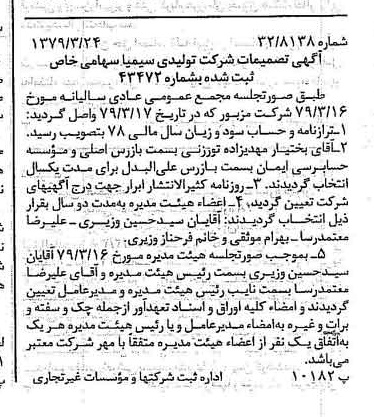 شماره ۳۲/۸۱۳۸ ۱۳۷۹/۳/۲۴
آگهی تصمیمات شرکت تولیدی سیمیا سهامی خاص
ثبت شده بشماره ۴۳۴۷۲
طبق صورتجلسه مجمع عمومی عادی سالیانه مورخ
۷۹/۳/۱۶ شرکت مزبور که در تاریخ ۷۹/۳/۱۷ واصل گردید:
۱ـ ترازنامه و حساب سود و زیان سال مالی ۷۸ بتصویب رسید.
۲ـ آقای بختیار مهدیزاده تورزنی بسمت بازرس اصلی و مؤسسه
حسابرسی ایمان بسمت بازرس علی‌البدل برای مدت یکسال
انتخاب گردیدند. ۳ـ روزنامه کثیرالانتشار ابرار جهت درج آگهیهای
شرکت تعیین گردید. ۴ـ اعضاء هیئت مدیره به‌مدت دو سال بقرار
ذیل انتخاب گردیدند: آقایان سیدحسین وزیری ـ علیرضا
معتمدرسا ـ بهرام موثقی و خانم فرحناز وزیری.
۵ـ بموجب صورتجلسه هیئت مدیره مورخ ۷۹/۳/۱۶ آقایان
سیدحسین وزیری بسمت رئیس هیئت مدیره و آقای علیرضا
معتمدرسا بسمت نایب رئیس هیئت مدیره و مدیرعامل تعیین
گردیدند و امضاء کلیه اوراق و اسناد تعهدآور ازجمله چک و سفته و
برات و غیره به‌امضاء مدیرعامل و یا رئیس هیئت مدیره هر یک
به‌اتفاق یک نفر از اعضاء هیئت مدیره متفقاً با مهر شرکت معتبر
می‌باشد.
پ ۱۰۱۸۲ اداره ثبت شرکتها و مؤسسات غیرتجاری